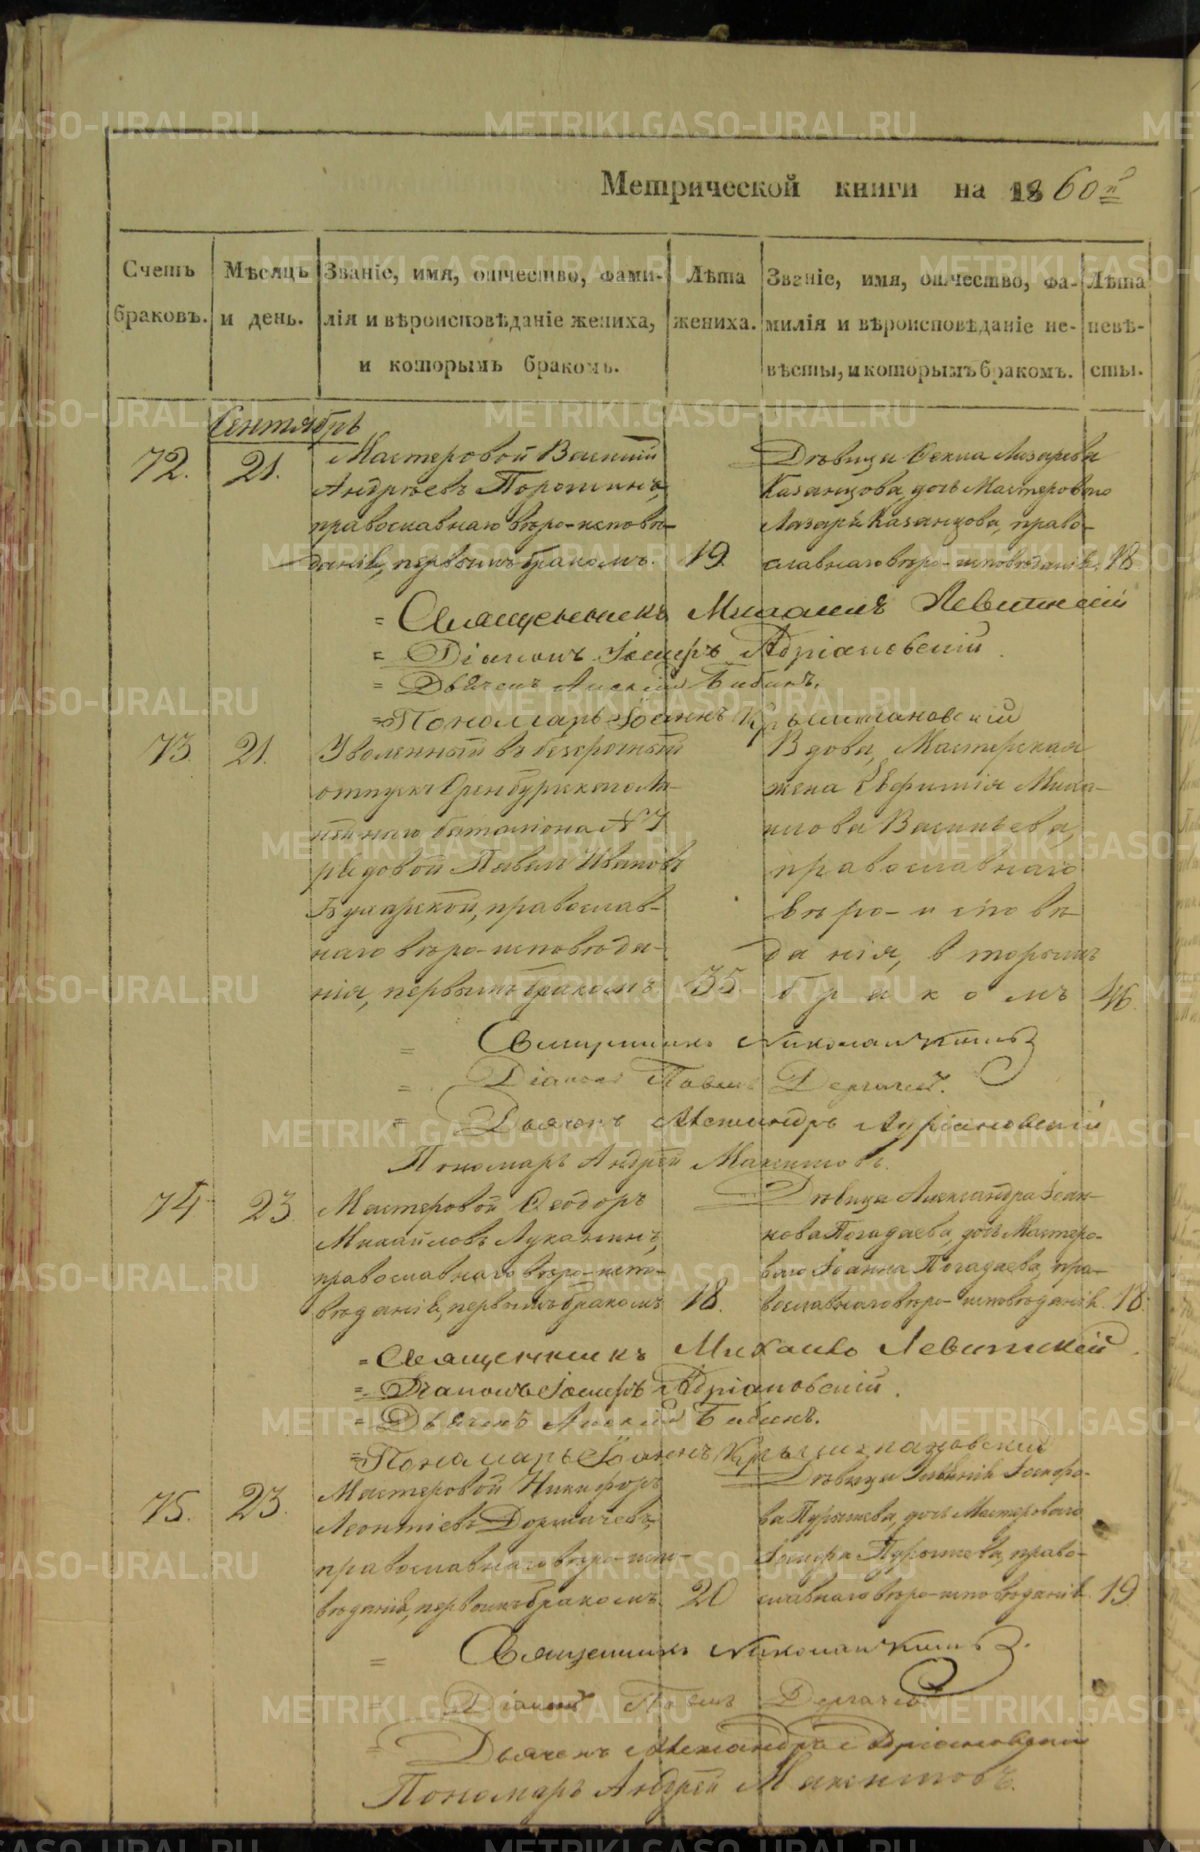 Метрической книги на 1860й
Счетъ браковъ.
Мѣсяцъ и день.
Званіе, имя, отчество, фами-
лія и вѣроисповѣданіе жениха,
и которымъ бракомъ.
Лѣта жениха.
Званіе, имя, отчество, фа-
милія и вѣроисповѣданіе не-
вѣсты, и которымъ бракомъ.
Лѣта невѣ-
сты.
Сентябрь
72. 21.
Мастеровой Василій
Андреевъ Поротинъ,
православнаго вѣро-исповѣ-
данія, первымъ бракомъ. 19.
Дѣвица Ѳекла Лазарева
Казанцова, дочь Мастероваго
Лазаря Казанцова, право-
славнаго вѣро-исповѣданія. 18
= Священникъ Михаилъ Левитскій
= Діаконъ Іосифъ Адріановскій.
= Дьячекъ Алексій Бибинъ.
= Пономарь Іоаннъ
73 21.
Уволенный въ безсрочный
отпускъ Оренбургскаго Ли-
нейнаго баталіона №7
рядовой Павелъ Ивановъ
Бухарской, православ-
наго вѣро-исповѣда-
нія, первымъ бракомъ 35
Вдова, Мастерская
жена Евфимія Михаи-
лова Васильева,
православнаго
вѣро-исповѣ-
данія, вторымъ
бракомъ 46.
= Священникъ Николай
= Діаконъ Павелъ
= Дьячекъ Александръ Адріановскій
Пономарь Андрей Максимовъ.
74 23
Мастеровой Ѳеодоръ
Михайловъ Лукатинъ,
православнаго вѣро-испо-
вѣданія, первымъ бракомъ 18.
Дѣвица Александра Іоан-
нова Погадаева, дочь Мастеро-
ваго Іоанна Погадаева, пра-
вославнаго вѣро-исповѣданія. 18.
= Священникъ Михаилъ Левитскій.
= Діаконъ Іосифъ Адріановскій.
= Дьячекъ Алексій Бибинъ.
= Пономарь Іоаннъ
75. 23.
Мастеровой Никифоръ
Леонтіевъ
православнаго вѣро-испо-
вѣданія, первымъ бракомъ 20
Дѣвица Іосифо-
ва дочь Мастероваго
Іосифа право-
славнаго вѣро-исповѣданія. 19
= Священникъ Николай
= Діаконъ Павелъ
= Дьячекъ Александръ Адріановскій
Пономарь Андрей Максимовъ.
METRIKI.GASO-URAL.RU